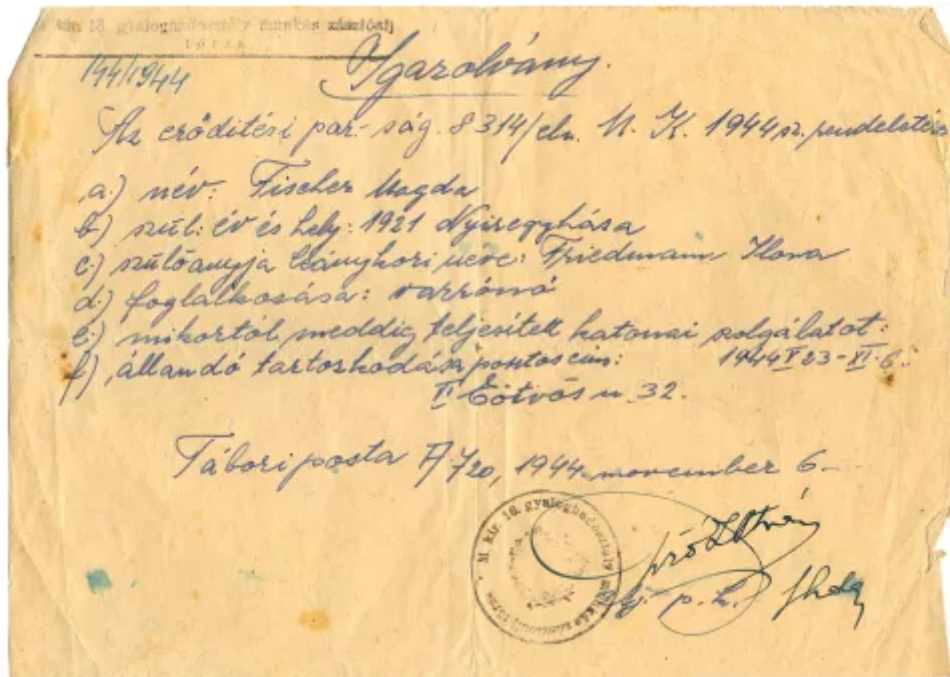 kir. 16. gyaloghadosztály munkás zászlóalj
törzs
144/1944
Igazolvány.
Az erőditési par-ság 8314/eln. M. K. 1944 sz. rendeletére
a.) név: Fischer Magda
b.) szül: év és hely: 1921 Nyiregyhása
c.) szülőanyja leánykori neve: Friedmann Ilona
d.) foglalkosása: varrónő
e.) mikortól meddig teljesített katonai szolgálatot:
f.) állandó tartoskodása pontos cim: 1944 X 23-XI. 6.
II Eötvös u. 32.
Tábori posta A 720, 1944 november 6-
M. kir. 16. gyaloghadosztály munkás zászlóalj törzs
István
p. h.